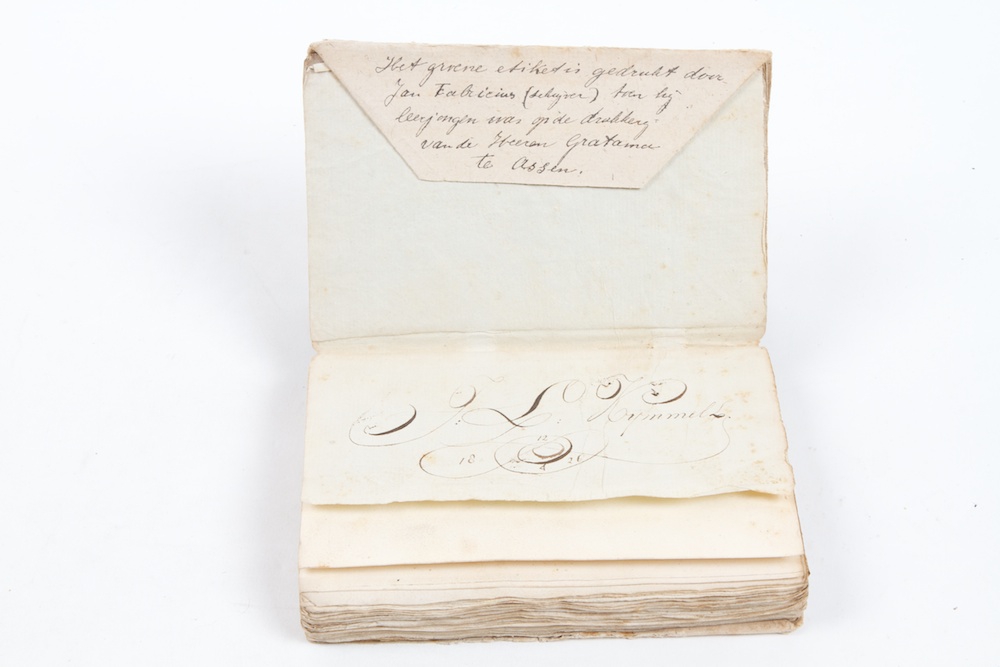 Het groene etiket is gedrukt door
Jan Fabricius (schrijver) toen hij
leerjongen was op de drukkerij
van de Heeren Gratama
te Assen.
J: L: Kymmell.
12
18 26
4